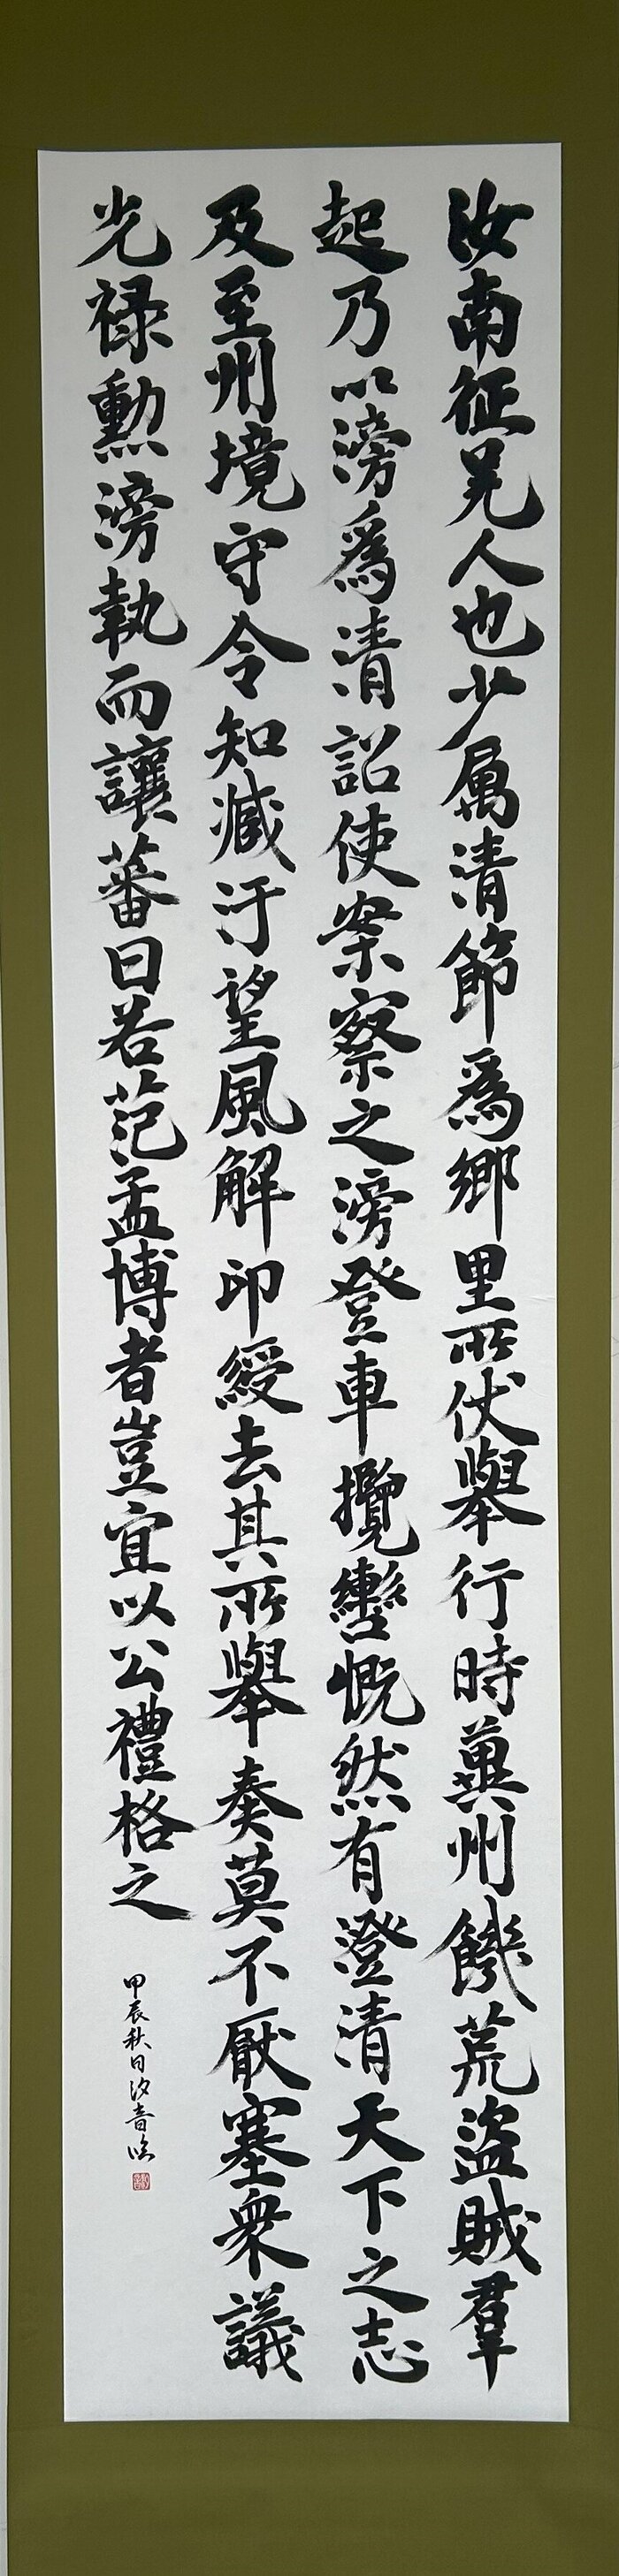 汝南征羌人也少属清節爲鄉里所伏舉行時冀州饑荒盜賊羣
起乃以滂爲清詔使案察之滂登車攬轡慨然有澄清天下之志
及至州境守令知臧汙望風解印綬去其所舉奏莫不厭塞衆議
光禄勲滂執而讓蕃曰若范孟博者豈宜以公禮格之
甲辰秋日汐音臨